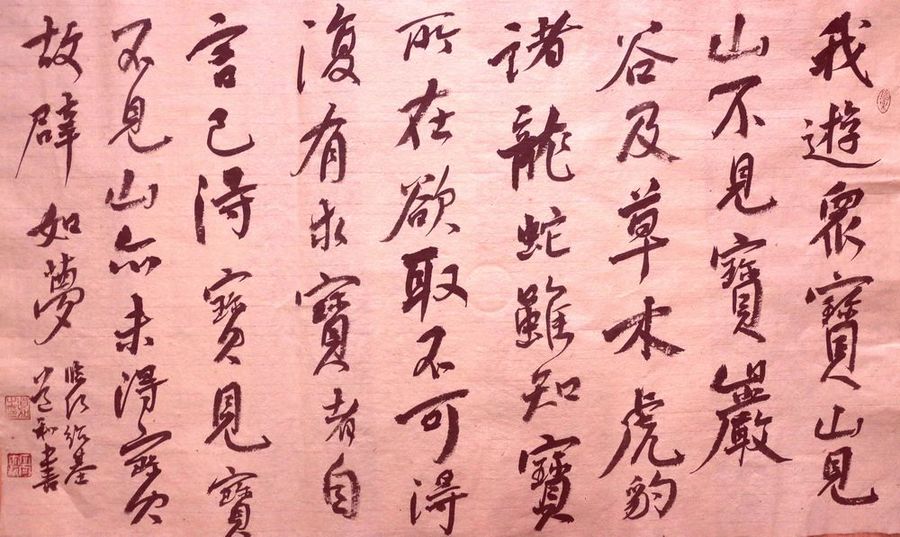 我遊眾寶山見
山不見寶巖
谷及草木虎豹
諸龍蛇雖知寶
所在欲取不可得
復有求寶者自
言已得寶見寶
不見山亦未得寶
故辟如夢
書